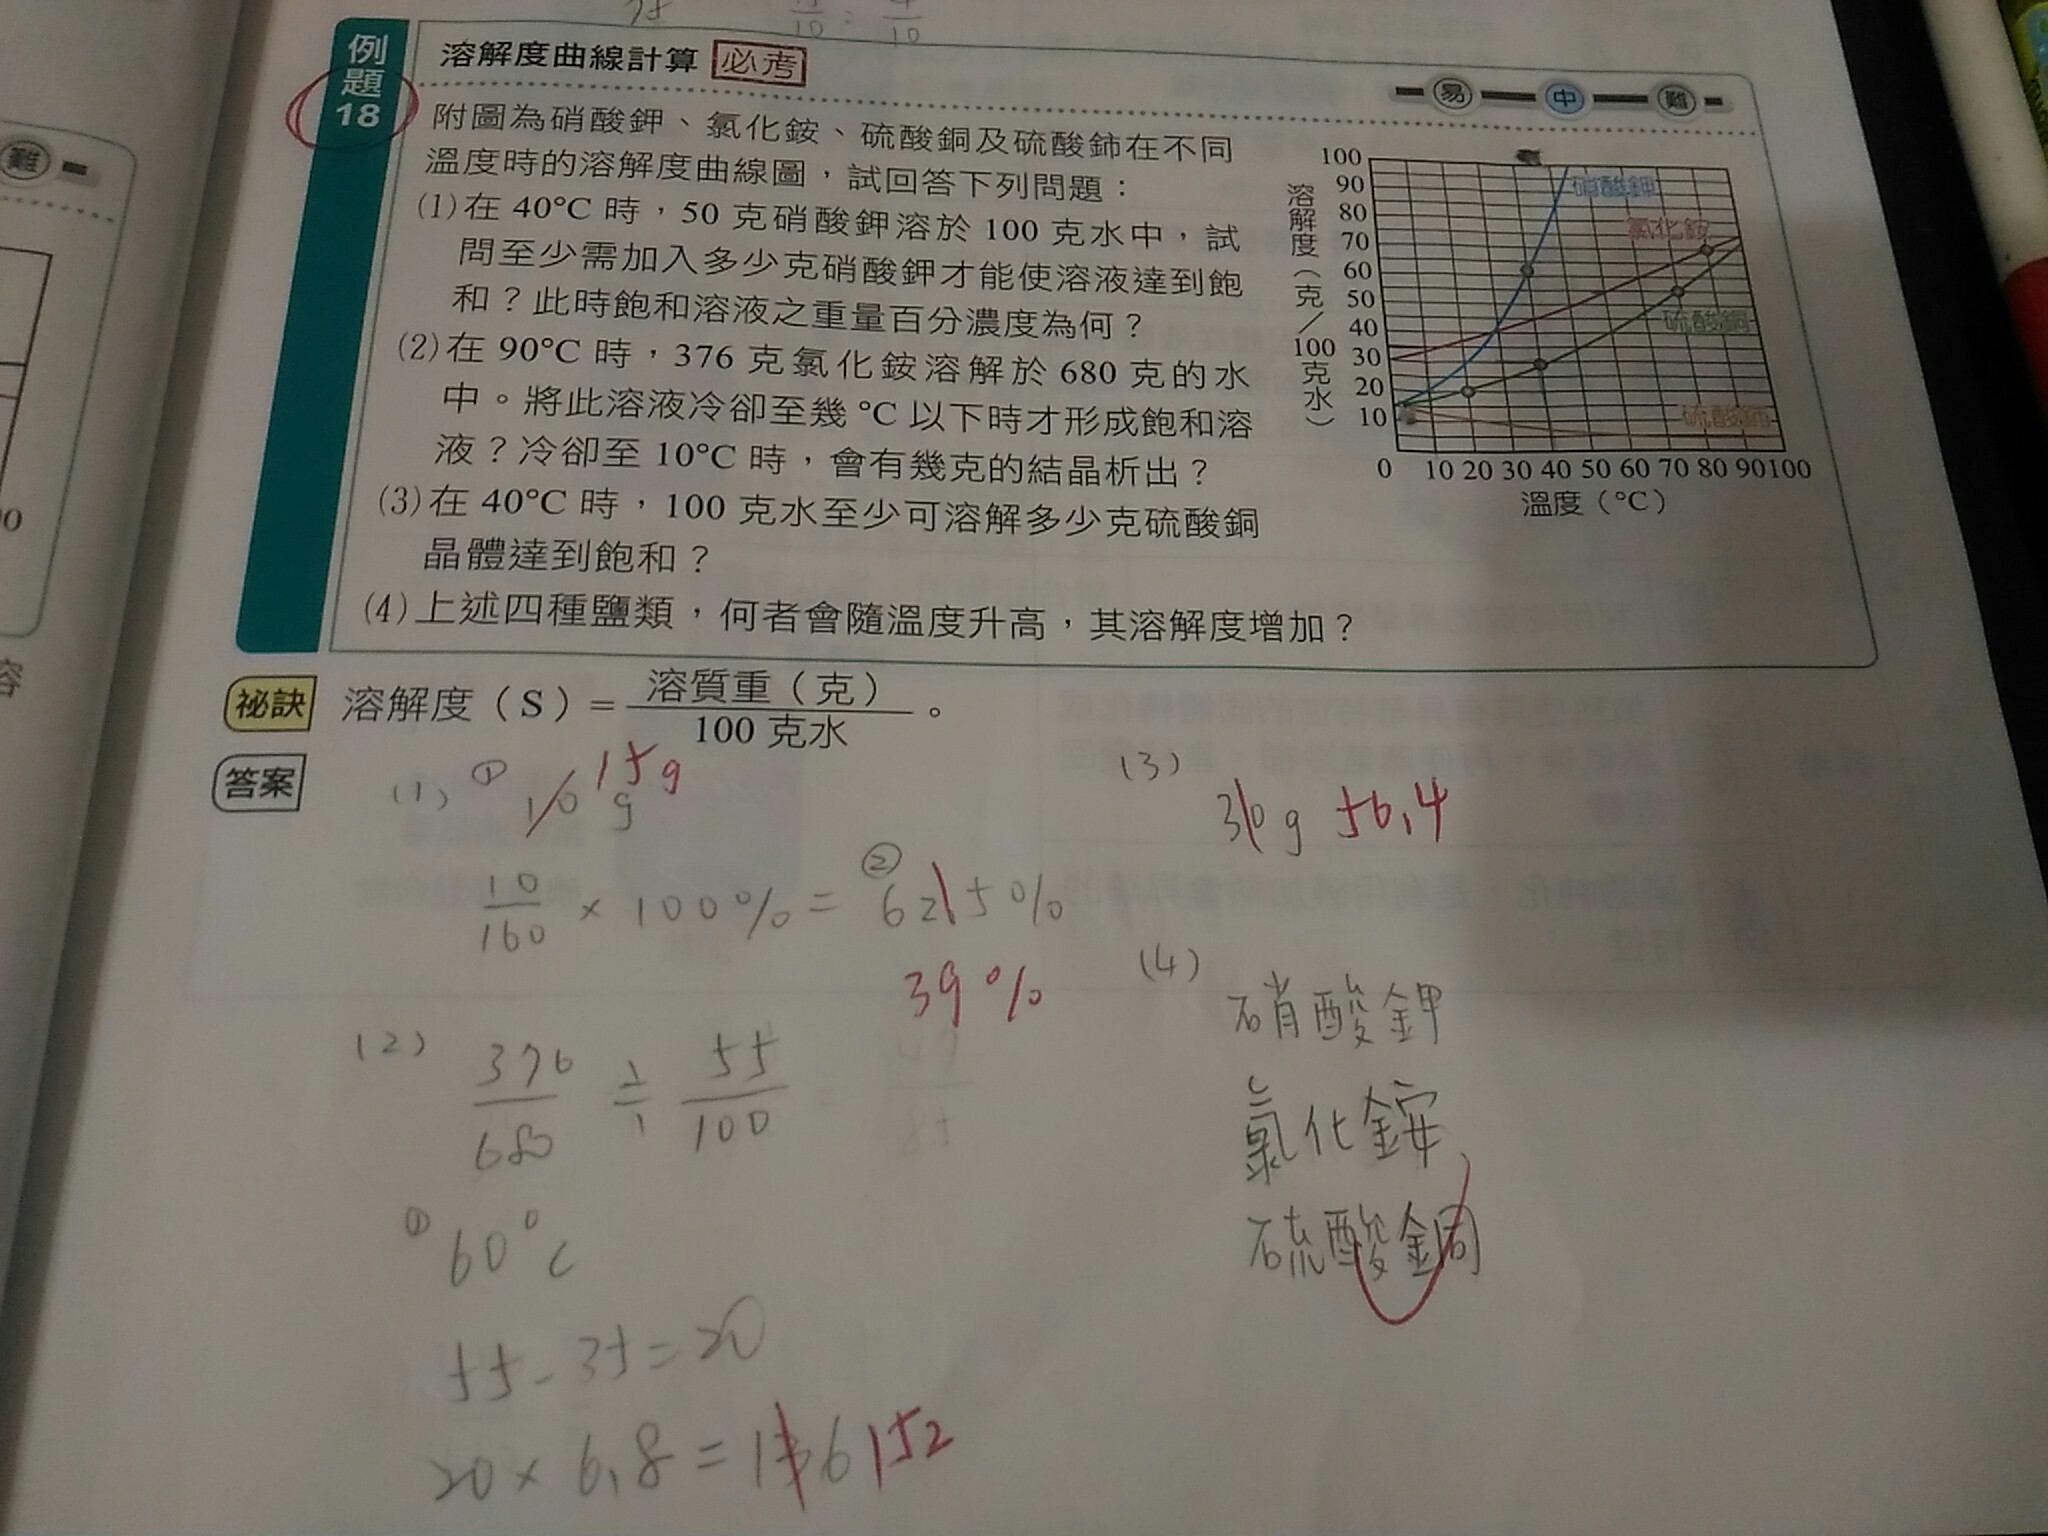 例題18
溶解度曲線計算 必考
易 中 難
附圖為硝酸鉀、氯化銨、硫酸銅及硫酸鈰在不同
溫度時的溶解度曲線圖，試回答下列問題：
(1)在 40°C 時，50 克硝酸鉀溶於 100 克水中，試
問至少需加入多少克硝酸鉀才能使溶液達到飽
和？此時飽和溶液之重量百分濃度為何？
(2)在 90°C 時，376 克氯化銨溶解於 680 克的水
中。將此溶液冷卻至幾 °C 以下時才形成飽和溶
液？冷卻至 10°C 時，會有幾克的結晶析出？
(3)在 40°C 時，100 克水至少可溶解多少克硫酸銅
晶體達到飽和？
(4)上述四種鹽類，何者會隨溫度升高，其溶解度增加？
溶解度（克／100克水）
100
90
80
70
60
50
40
30
20
10
0 10 20 30 40 50 60 70 80 90 100
溫度（°C）
硝酸鉀
氯化銨
硫酸銅
硫酸鈰
難
祕訣 溶解度（S）= 溶質重（克） / 100 克水 。
答案
(1) ① 10 g 15g
10/160 × 100% = ② 62.5%
39%
(2) 376/680 ≒ 55/100
① 60°C
55 - 35 = 20
20 × 6.8 = 136 152
(3)
36g 56.4
(4)
硝酸鉀
氯化銨
硫酸銅